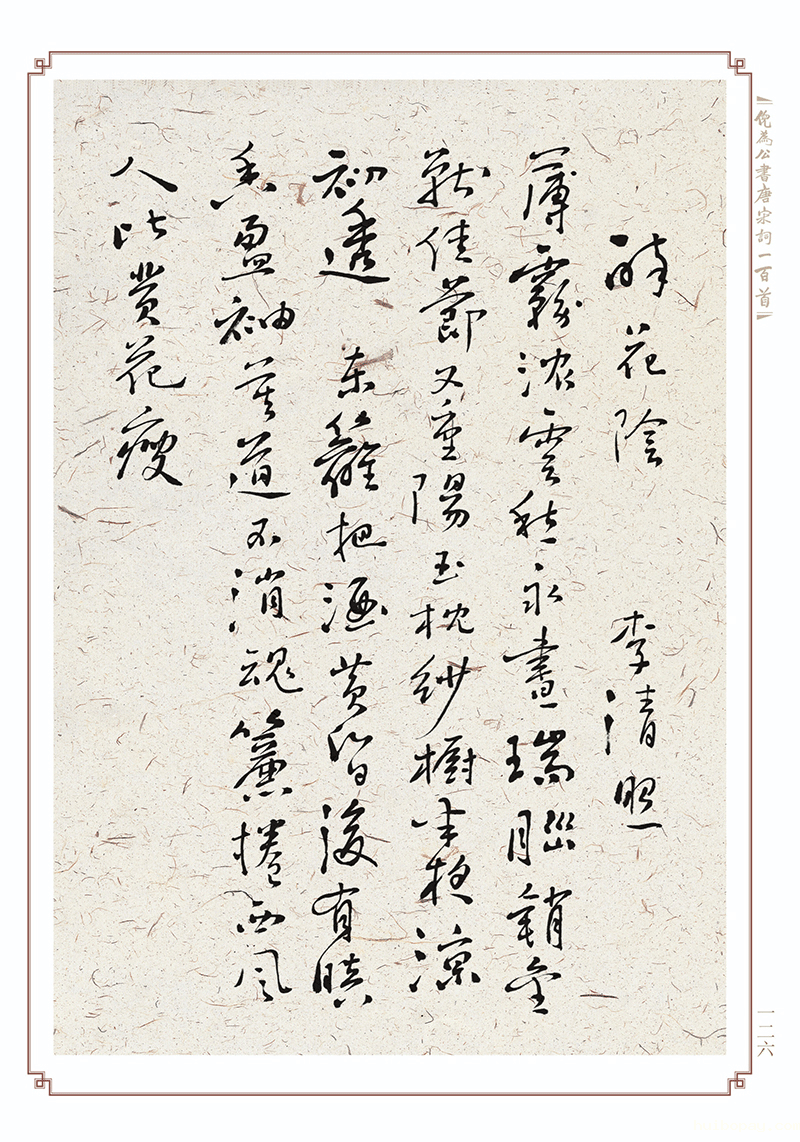 倪為公書唐宋詞一百首
醉花陰 李清照
薄霧濃雲愁永晝瑞腦銷金
獸佳節又重陽玉枕紗橱半夜涼
初透 東籬把酒黃昏後有暗
香盈袖莫道不消魂簾捲西風
人比黃花瘦
一二六